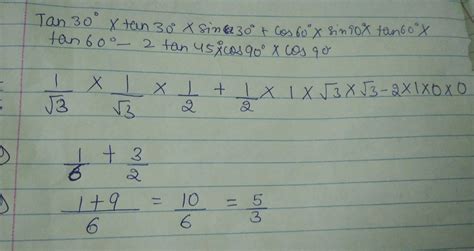 Tan 30° × tan 30° × sin 30° + cos 60° × sin 90° × tan 60° ×
tan 60° - 2 tan 45° × cos 90° × cos 90
1/√3 × 1/√3 × 1/2 + 1/2 × 1 × √3 × √3 - 2 × 1 × 0 × 0
1/6 + 3/2
(1+9)/6 = 10/6 = 5/3